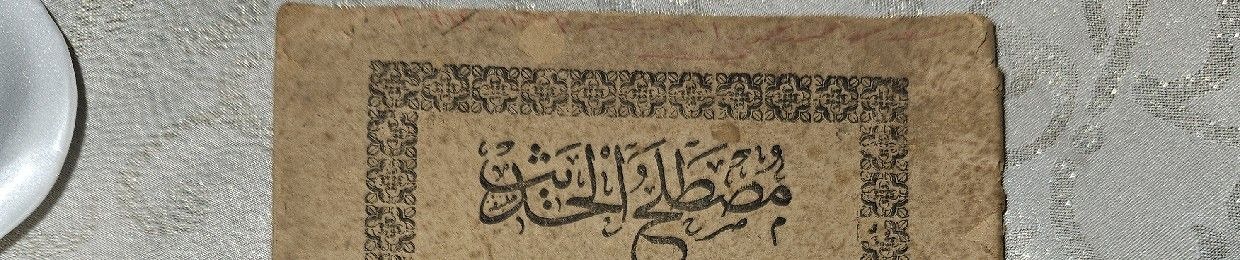 مُصْطَلَحُ الْحَدِيْثِ